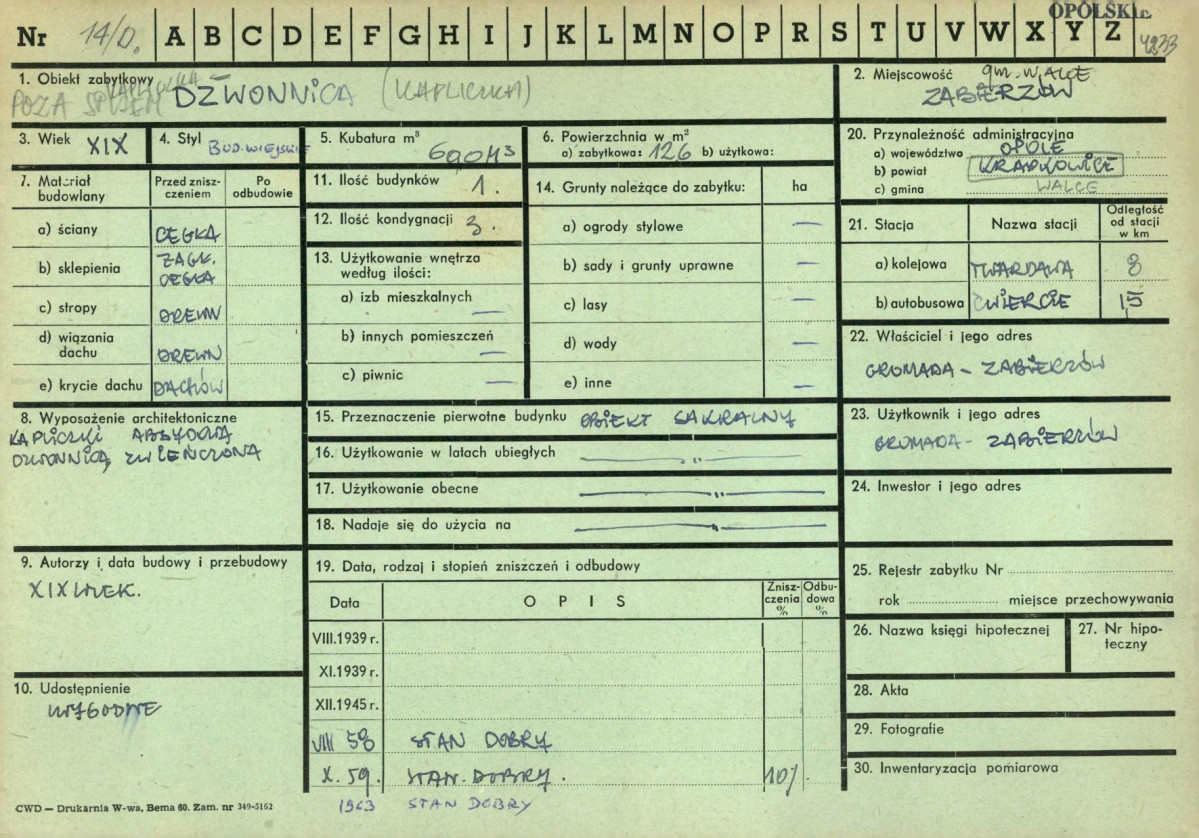 OPOLSKIE
Nr 14/D. A B C D E F G H I J K L M N O P R S T U V W X Y Z 4233
1. Obiekt zabytkowy
POZA SPISEM DZWONNICA (KAPLICZKA)
2. Miejscowość gm. WALCE
ZABIERZÓW
3. Wiek XIX
4. Styl BUD. WIEJSKIE
5. Kubatura m³
6. Powierzchnia w m²
a) zabytkowa: 126 b) użytkowa:
20. Przynależność administracyjna
a) województwo OPOLE
b) powiat KRAPKOWICE
c) gmina WALCE
7. Materiał budowlany
Przed zniszczeniem
Po odbudowie
a) ściany CEGŁA
b) sklepienia ŻAGL. CEGŁA
c) stropy DREWN
d) wiązania dachu DREWN
e) krycie dachu DACHÓW
11. Ilość budynków 1.
12. Ilość kondygnacji 3.
13. Użytkowanie wnętrza według ilości:
a) izb mieszkalnych —
b) innych pomieszczeń —
c) piwnic —
14. Grunty należące do zabytku: ha
a) ogrody stylowe —
b) sady i grunty uprawne —
c) lasy —
d) wody —
e) inne —
21. Stacja
Nazwa stacji
Odległość od stacji w km
a) kolejowa TWARDAWA 8
b) autobusowa ĆWIERCIE 1,5
22. Właściciel i jego adres
GROMADA – ZABIERZÓW
8. Wyposażenie architektoniczne
KAPLICZKI ABSYDOWA
DZWONNICA, ZWIEŃCZONA
15. Przeznaczenie pierwotne budynku OBIEKT SAKRALNY
16. Użytkowanie w latach ubiegłych — „ —
17. Użytkowanie obecne — „ —
18. Nadaje się do użycia na — „ —
23. Użytkownik i jego adres
GROMADA – ZABIERZÓW
24. Inwestor i jego adres
9. Autorzy i data budowy i przebudowy
XIX WIEK.
19. Data, rodzaj i stopień zniszczeń i odbudowy
Data
OPIS
Zniszczenia %
Odbudowa %
VIII.1939 r.
XI.1939 r.
XII.1945 r.
VIII 58 STAN DOBRY
X. 59. STAN. DOBRY. 10%
1963 STAN DOBRY
25. Rejestr zabytku Nr
rok miejsce przechowywania
26. Nazwa księgi hipotecznej
27. Nr hipoteczny
10. Udostępnienie
WYGODNE
28. Akta
29. Fotografie
30. Inwentaryzacja pomiarowa
CWD — Drukarnia W-wa, Bema 60. Zam. nr 349-5162